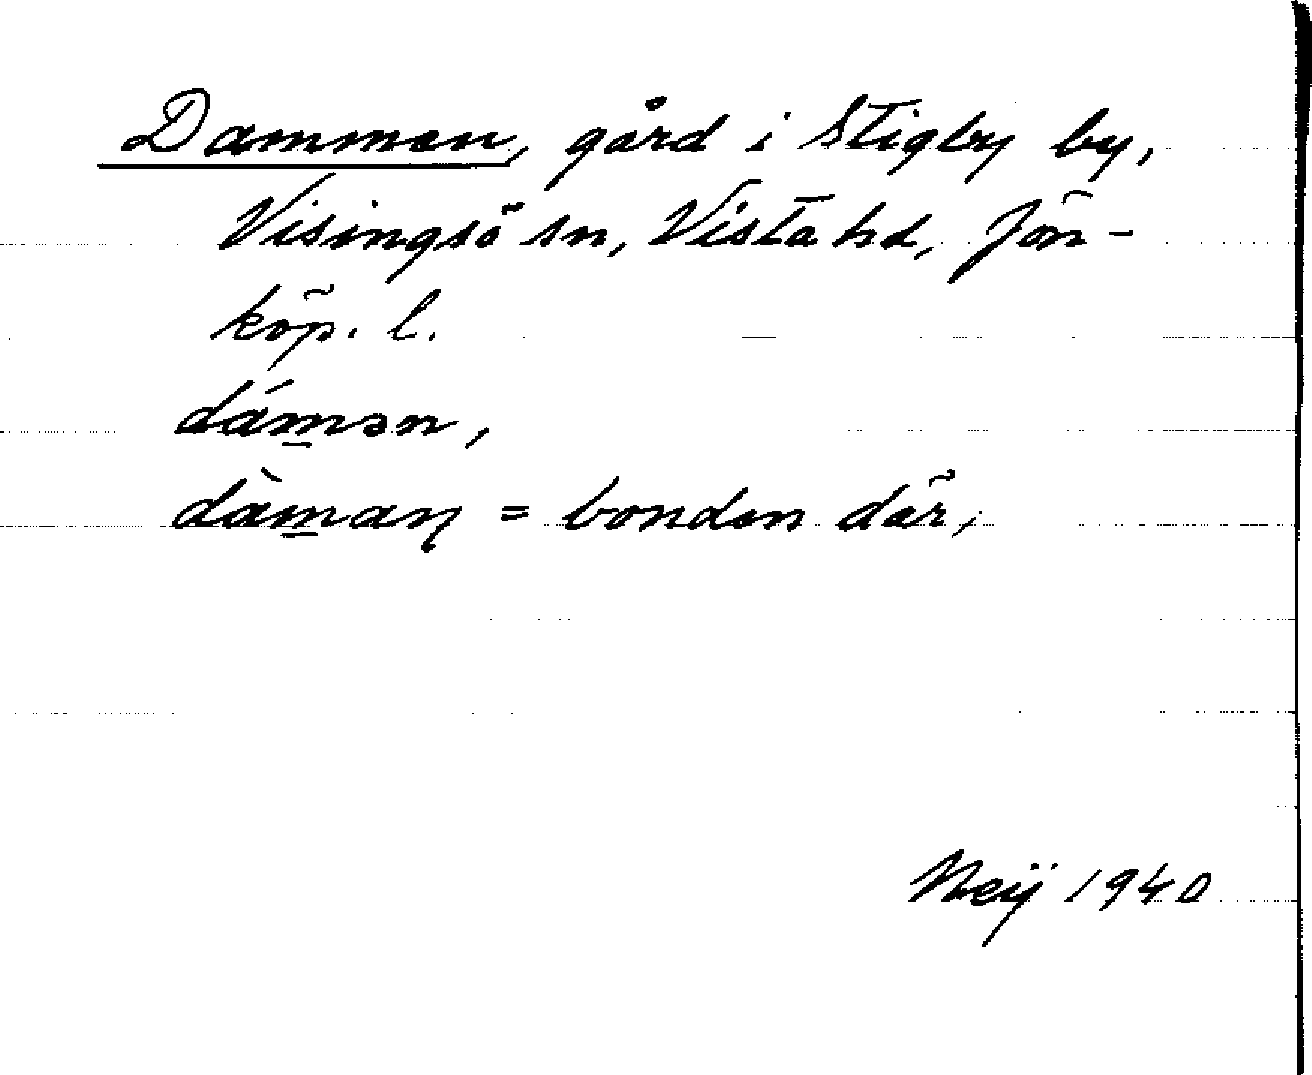 Dammen, gård i Stigby by,
Visingsö sn, Vista hd, Jön-
köp. l.
dám̲ən,
dàm̲aɳ = bonden där,
Neij 1940